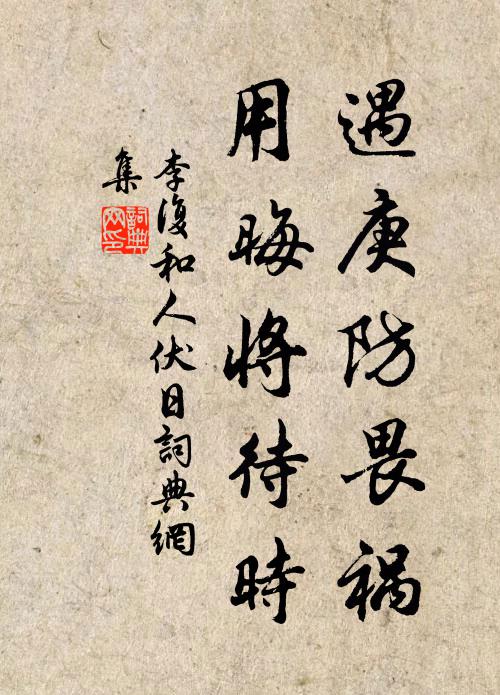 遇庚防畏禍
用晦將待時
李復和人伏日詞典網
集
詞典
网印